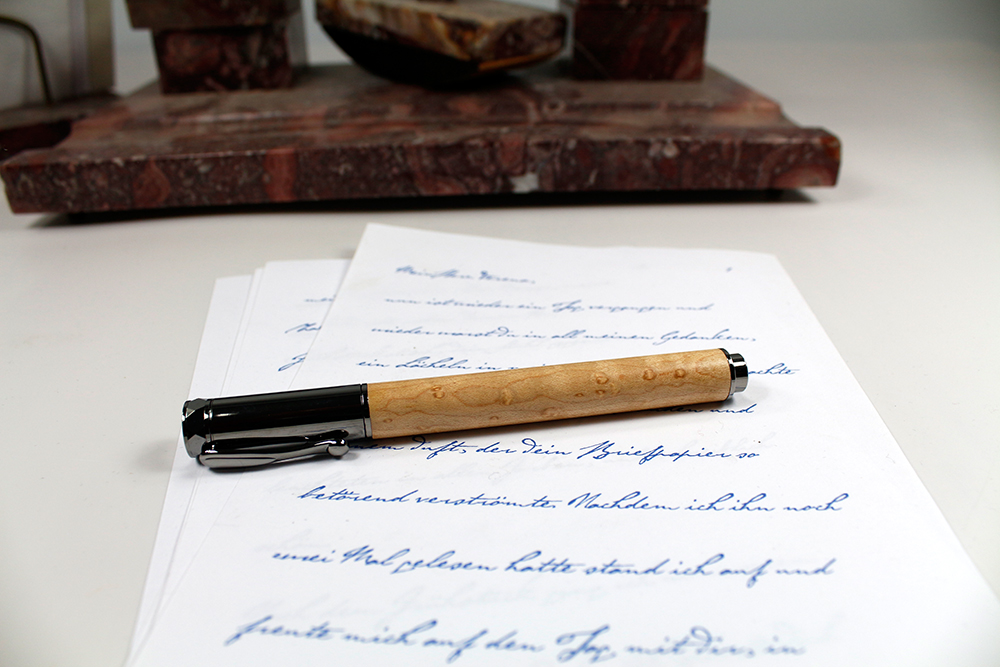 nun ist wieder ein Tag vergangen und
wieder warst Du in all meinen Gedanken,
ein Lächeln in
und
Duft, der dein Briefpapier so
betörend verströmte. Nachdem ich ihn noch
zwei Mal gelesen hatte stand ich auf und
freute mich auf den Tag, mit dir, in